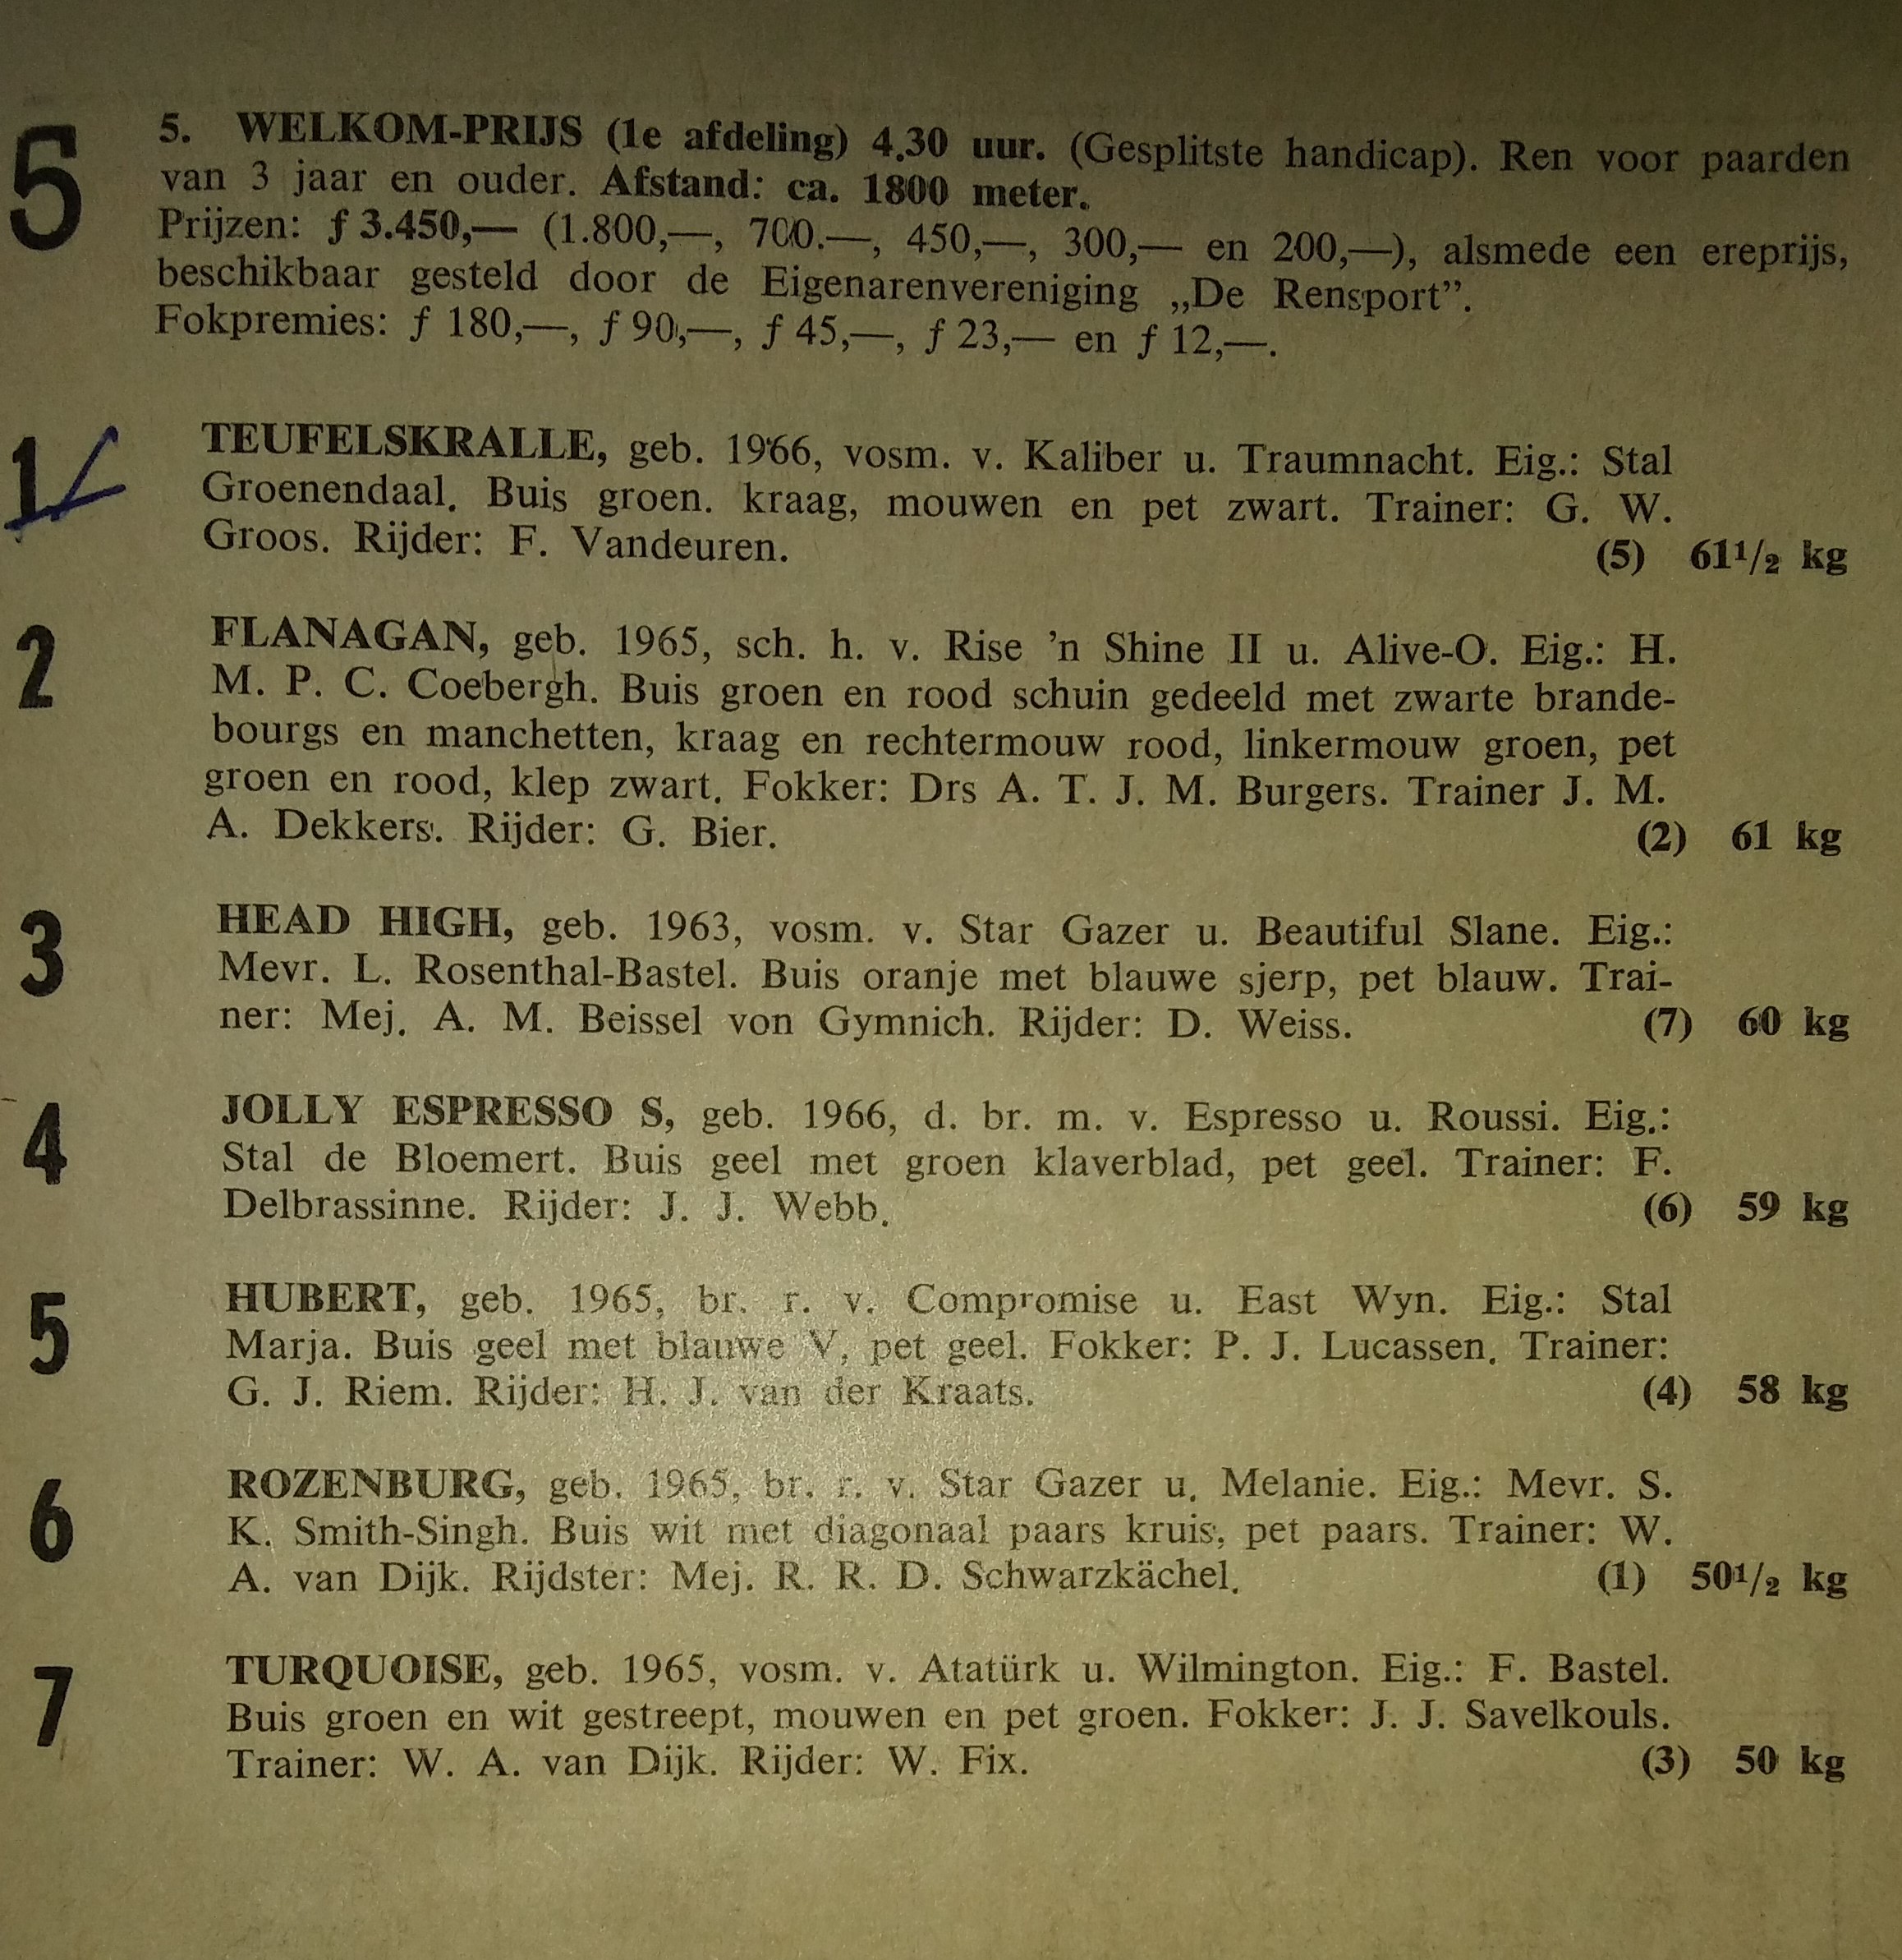 5
5. WELKOM-PRIJS (1e afdeling) 4.30 uur. (Gesplitste handicap). Ren voor paarden
van 3 jaar en ouder. Afstand: ca. 1800 meter.
Prijzen: ƒ 3.450,— (1.800,—, 700.—, 450,—, 300,— en 200,—), alsmede een ereprijs,
beschikbaar gesteld door de Eigenarenvereniging „De Rensport”.
Fokpremies: ƒ 180,—, ƒ 90,—, ƒ 45,—, ƒ 23,— en ƒ 12,—.
1
TEUFELSKRALLE, geb. 1966, vosm. v. Kaliber u. Traumnacht. Eig.: Stal
Groenendaal. Buis groen. kraag, mouwen en pet zwart. Trainer: G. W.
Groos. Rijder: F. Vandeuren. (5) 61½ kg
2
FLANAGAN, geb. 1965, sch. h. v. Rise ’n Shine II u. Alive-O. Eig.: H.
M. P. C. Coebergh. Buis groen en rood schuin gedeeld met zwarte brande-
bourgs en manchetten, kraag en rechtermouw rood, linkermouw groen, pet
groen en rood, klep zwart. Fokker: Drs A. T. J. M. Burgers. Trainer J. M.
A. Dekkers. Rijder: G. Bier. (2) 61 kg
3
HEAD HIGH, geb. 1963, vosm. v. Star Gazer u. Beautiful Slane. Eig.:
Mevr. L. Rosenthal-Bastel. Buis oranje met blauwe sjerp, pet blauw. Trai-
ner: Mej. A. M. Beissel von Gymnich. Rijder: D. Weiss. (7) 60 kg
4
JOLLY ESPRESSO S, geb. 1966, d. br. m. v. Espresso u. Roussi. Eig.:
Stal de Bloemert. Buis geel met groen klaverblad, pet geel. Trainer: F.
Delbrassinne. Rijder: J. J. Webb. (6) 59 kg
5
HUBERT, geb. 1965, br. r. v. Compromise u. East Wyn. Eig.: Stal
Marja. Buis geel met blauwe V, pet geel. Fokker: P. J. Lucassen. Trainer:
G. J. Riem. Rijder: H. J. van der Kraats. (4) 58 kg
6
ROZENBURG, geb. 1965, br. r. v. Star Gazer u. Melanie. Eig.: Mevr. S.
K. Smith-Singh. Buis wit met diagonaal paars kruis, pet paars. Trainer: W.
A. van Dijk. Rijdster: Mej. R. R. D. Schwarzkächel. (1) 50½ kg
7
TURQUOISE, geb. 1965, vosm. v. Atatürk u. Wilmington. Eig.: F. Bastel.
Buis groen en wit gestreept, mouwen en pet groen. Fokker: J. J. Savelkouls.
Trainer: W. A. van Dijk. Rijder: W. Fix. (3) 50 kg